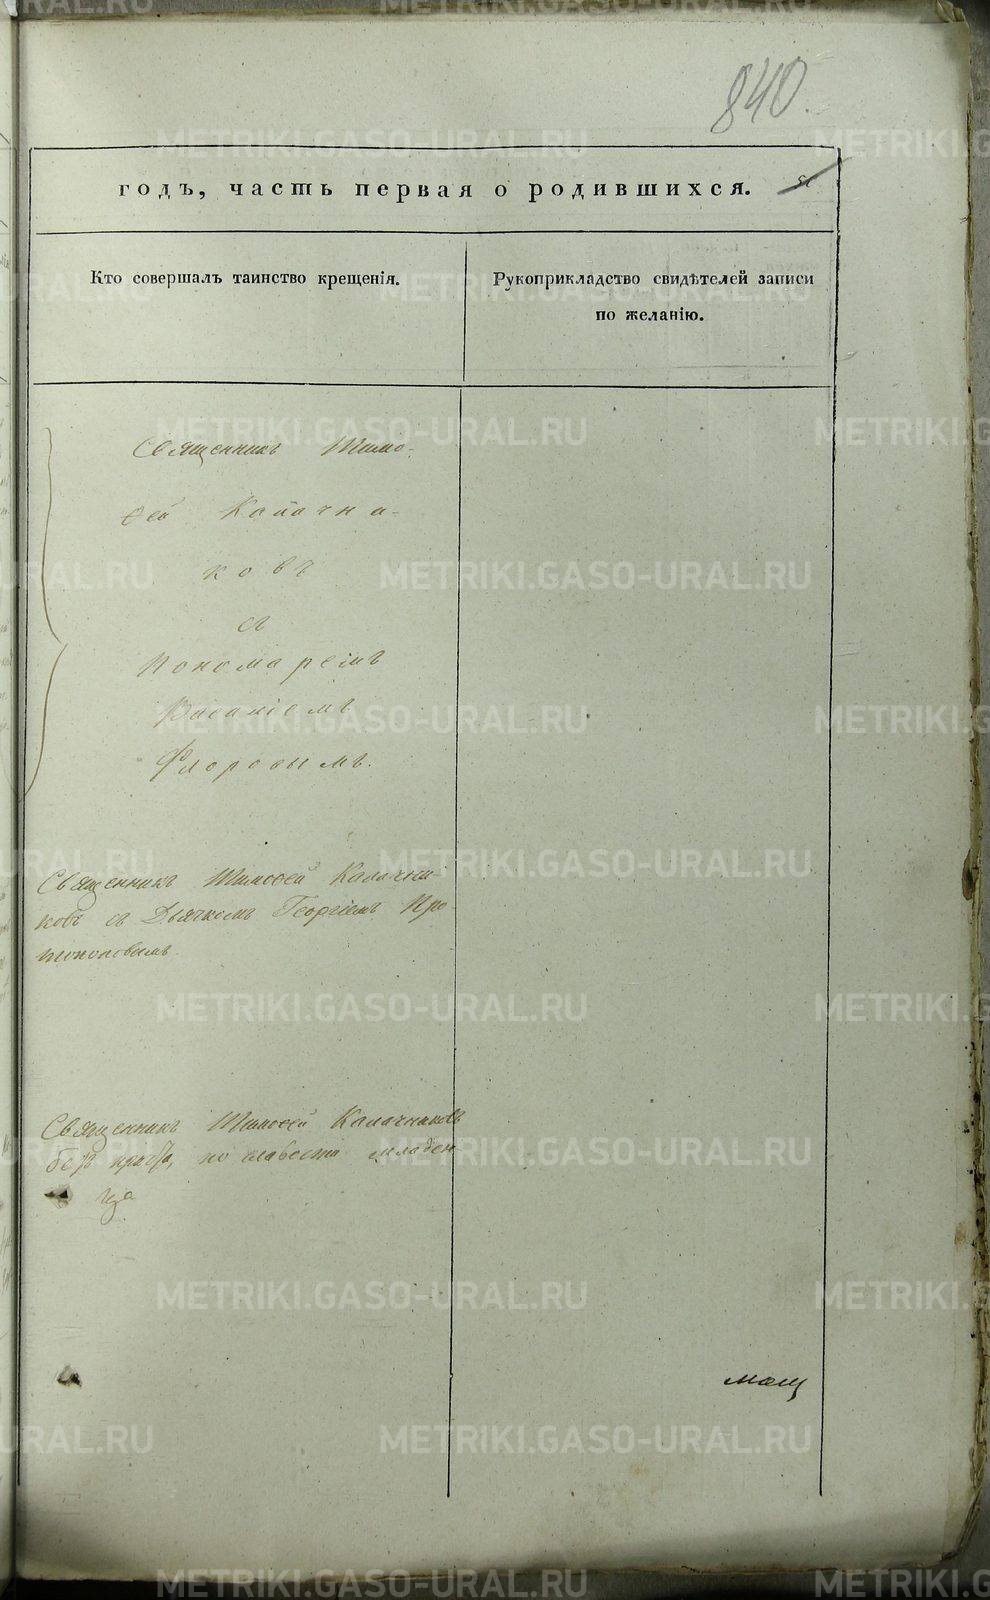 840.
годъ, часть первая о родившихся.
Кто совершалъ таинство крещенія.
Рукоприкладство свидѣтелей записи
по желанію.
Священникъ Тимо-
ѳей Калачни-
ковъ
съ
Пономаремъ
Василіемъ
Флоровымъ.
Священникъ Тимоѳей Калачни-
ковъ съ Дьячкомъ Георгіемъ Про-
топоповымъ.
Священникъ Тимоѳей Калачниковъ
безъ причта, по слабости младен
ца
METRIKI.GASO-URAL.RU